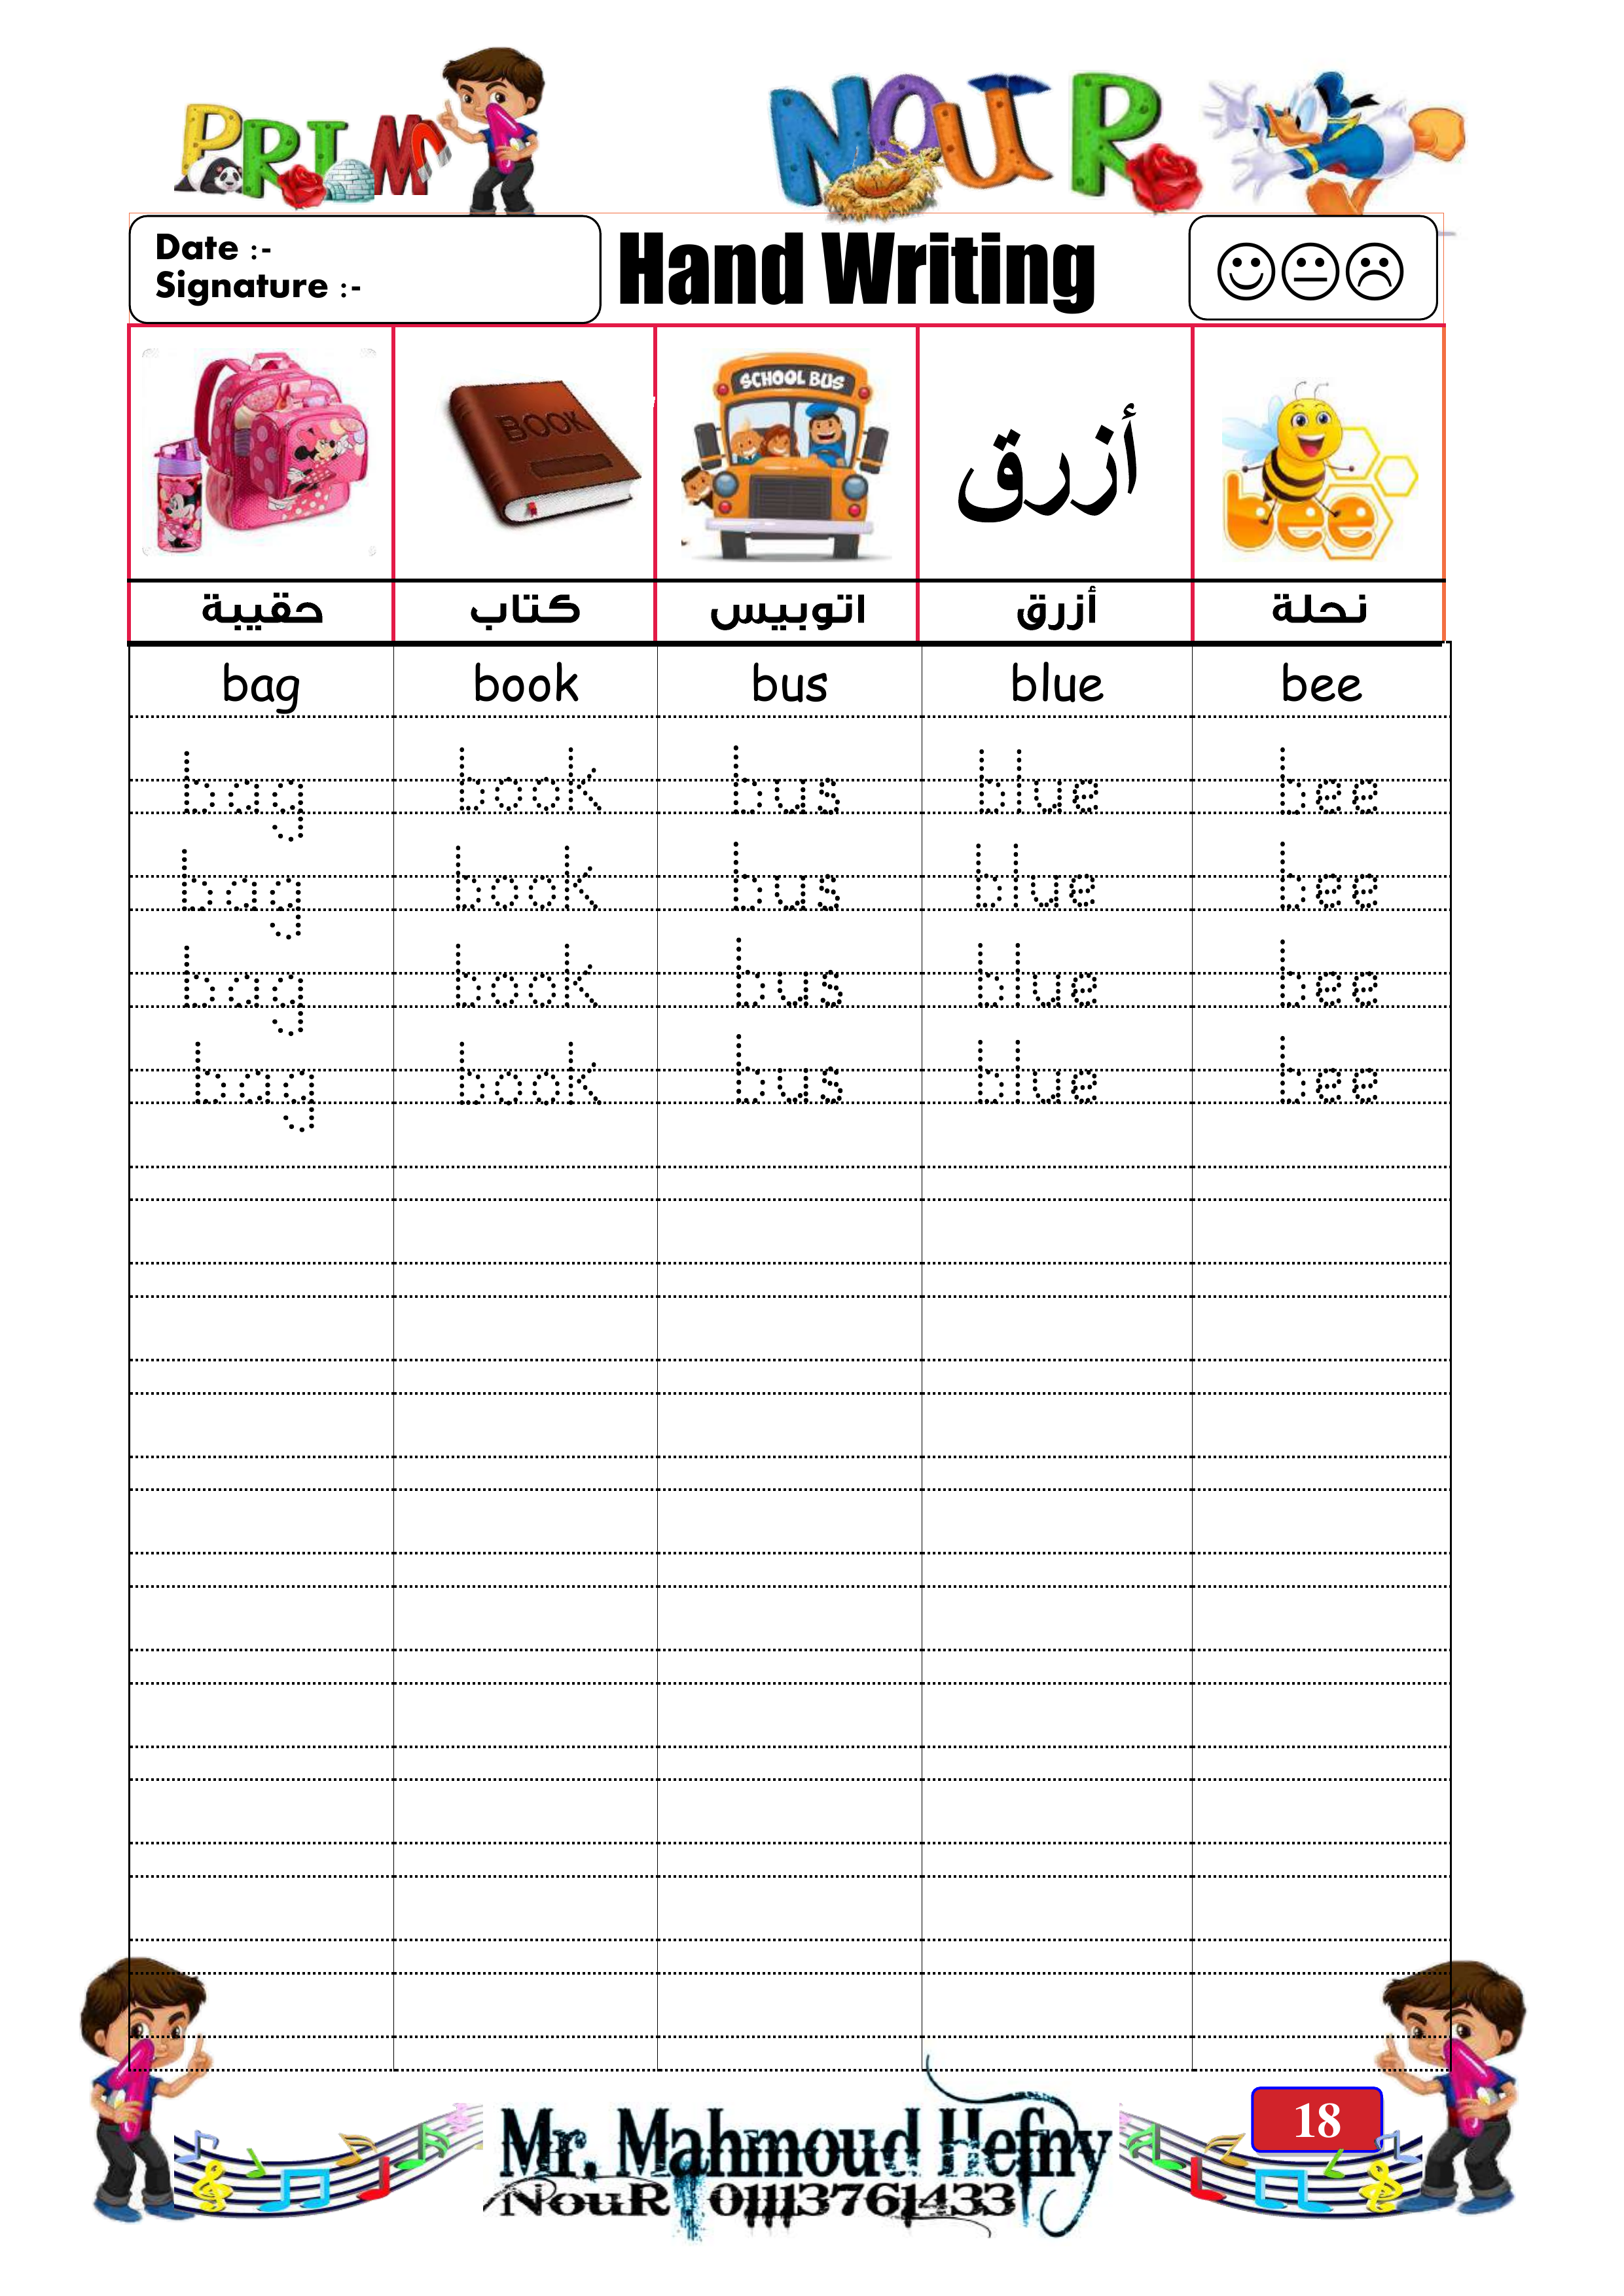 PRIM 1
NOUR
Date :-
Signature :-
Hand Writing
BOOK
SCHOOL BUS
أزرق
bee
حقيبة كتاب اتوبيس أزرق نحلة
bag book bus blue bee
bag book bus blue bee
bag book bus blue bee
bag book bus blue bee
bag book bus blue bee
18
Mr. Mahmoud Hefny
NouR . 01113761433